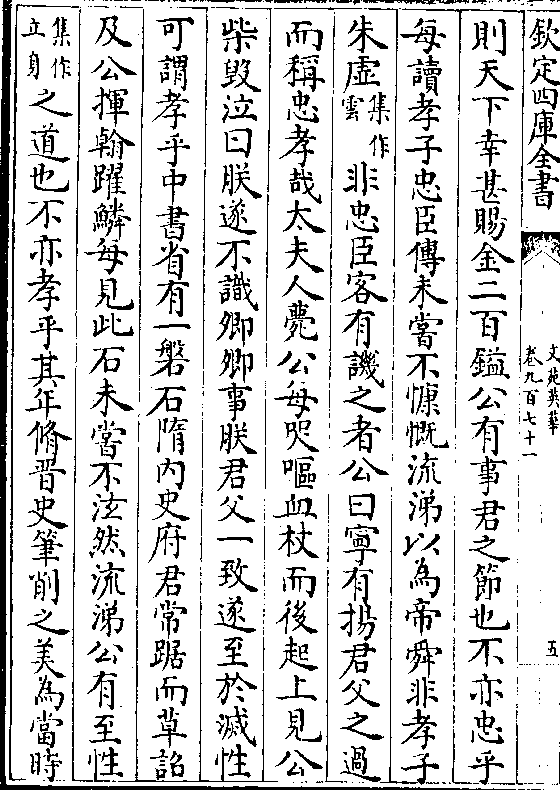 欽定四庫全書
文苑英華
卷九百七十一
五
則天下幸甚賜金二百鎰公有事君之節也不亦忠乎
每讀孝子忠臣傳未嘗不慷慨流涕以為帝舜非孝子
朱虛集作雲非忠臣客有譏之者公曰寧有揚君父之過
而稱忠孝哉太夫人薨公每哭嘔血杖而後起上見公
柴毀泣曰朕遂不識卿卿事朕君父一致遂至於滅性
可謂孝乎中書省有一磐石隋內史府君常踞而草詔
及公揮翰躍鱗每見此石未嘗不泫然流涕公有至性
集作立身之道也不亦孝乎其年脩晋史筆削之美為當時